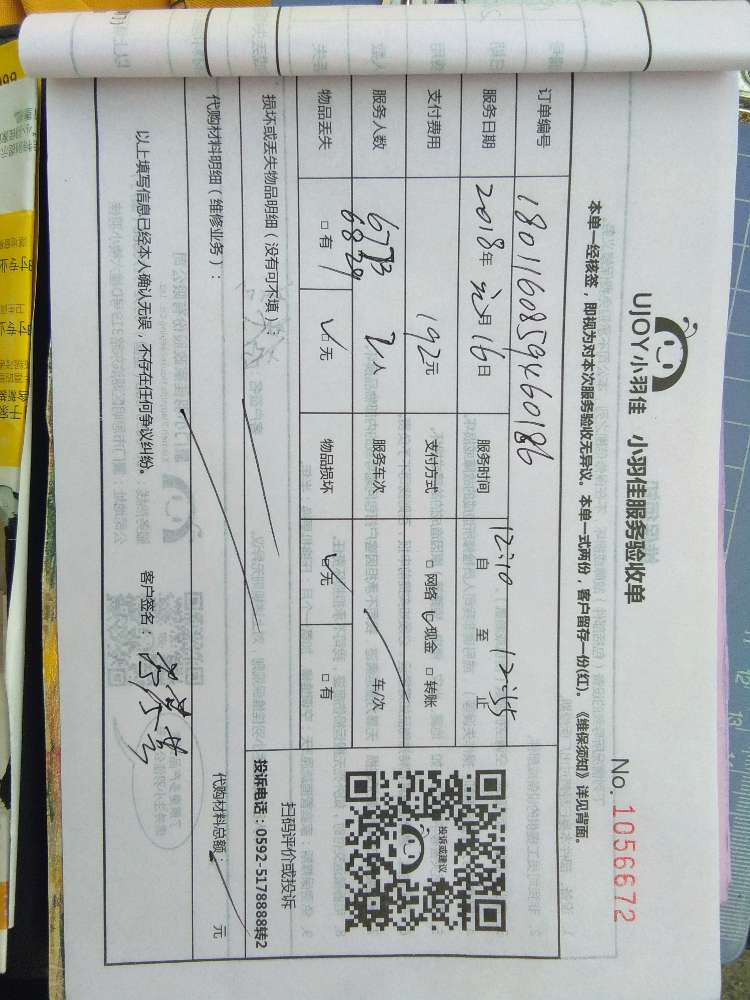 UJOY小羽佳 小羽佳服务验收单
No. 1056672
本单一经核签，即视为对本次服务验收无异议。本单一式两份，客户留存一份(红)。《维保须知》详见背面。
订单编号 180116085946018б
服务日期 2018年 元月16日 服务时间 12:10 自 至 12:55 止
支付费用 192元 支付方式 □网络 □现金 □转账
服务人数 2人 服务车次 车/次
物品丢失 □有 □无 物品损坏 □无 □有
投诉或建议
扫码评价或投诉
投诉电话：0592-5178888转2
损坏或丢失物品明细（没有可不填）：
代购材料明细（维修业务）：
代购材料总额： 元
以上填写信息已经本人确认无误，不存在任何争议纠纷。 客户签名：